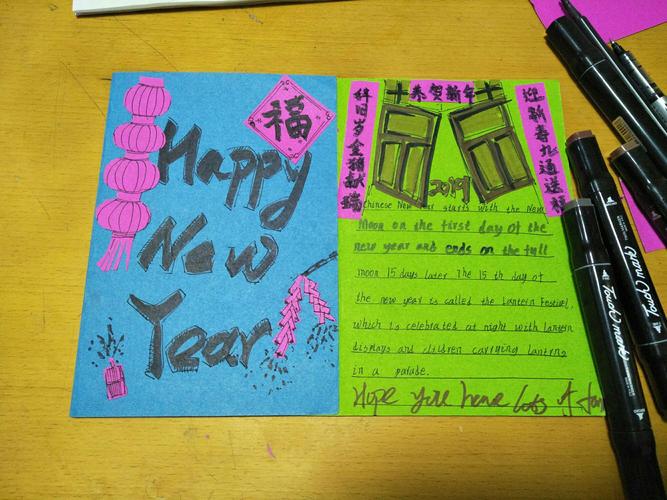 福
Happy
New
Year
恭贺新年
辞旧岁金猪献瑞
迎新春九通送
2019
Chinese New Year starts with the New
Moon on the first day of the
new year and ends on the full
moon 15 days later The 15 th day of
the new year is called the Lantern Festival,
which is celebrated at night with lantern
displays and children carrying lanterns
in a parade.
Hope you have lots of fun
Touch mark
Touch mark